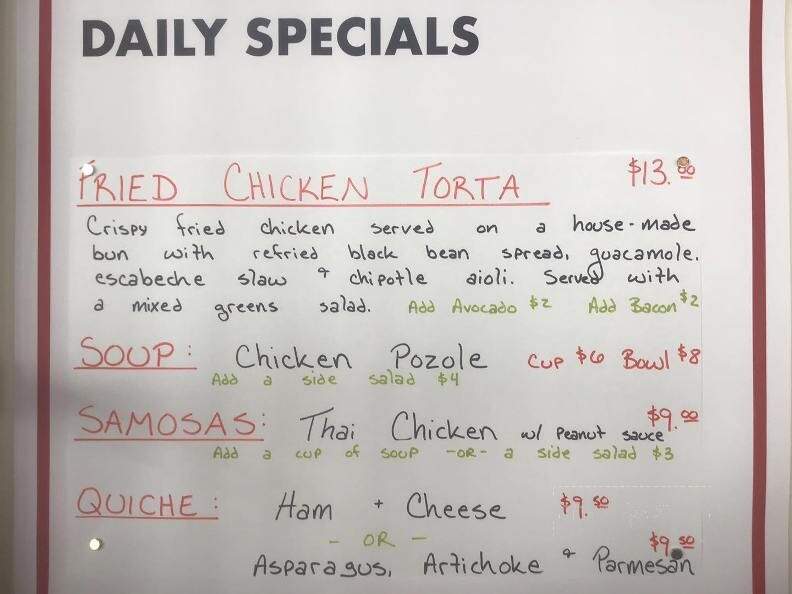 DAILY SPECIALS
FRIED CHICKEN TORTA $13.00
Crispy fried chicken served on a house-made
bun with refried black bean spread, guacamole,
escabeche slaw & chipotle aioli. Served with
a mixed greens salad. Add Avocado $2 Add Bacon $2
SOUP: Chicken Pozole CUP $6 Bowl $8
Add a side salad $4
SAMOSAS: Thai Chicken w/ Peanut sauce $9.00
Add a cup of soup -OR- a side salad $3
QUICHE: Ham + Cheese $9.50
- OR -
Asparagus, Artichoke & Parmesan $9.50